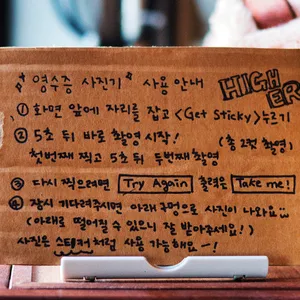 영수증 사진기 사용 안내
HIGHER
① 화면 앞에 자리를 잡고 <Get Sticky>누르기
② 5초 뒤 바로 촬영 시작! (총 2컷 촬영)
첫번째 찍고 5초 뒤 두번째 촬영
③ 다시 찍으려면 Try Again 출력은 Take me!
④ 잠시 기다려주시면 아래 구멍으로 사진이 나와요
(아래로 떨어질 수 있으니 잘 받아주세요!)
사진은 스티커처럼 사용 가능해요~!